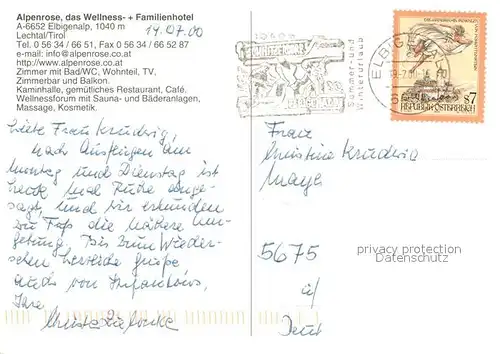 Alpenrose, das Wellness- + Familienhotel
A-6652 Elbigenalp, 1040 m
Lechtal/Tirol
Tel. 0 56 34 / 66 51, Fax 0 56 34 / 66 52 87
e-mail: info@alpenrose.co.at
http://www.alpenrose.co.at
Zimmer mit Bad/WC, Wohnteil, TV,
Zimmerbar und Balkon.
Kaminhalle, gemütliches Restaurant, Café.
Wellnessforum mit Sauna- und Bäderanlagen,
Massage, Kosmetik.
19.07.00
Liebe Frau Krudwig,
nach Ausflügen am
Montag und Dienstag ist
heute mal Ruhe ange-
sagt, und wir erkunden
zu Fuß die nähere Um-
gebung. Bis zum Wieder-
sehen herzliche Grüße
auch von
Ihre
Sommer- und
Winterurlaub
ELBIGENALP
REPUBLIK ÖSTERREICH
S7
Frau
Christine Krudwig
5675
privacy protection
DELCAMPE.NET